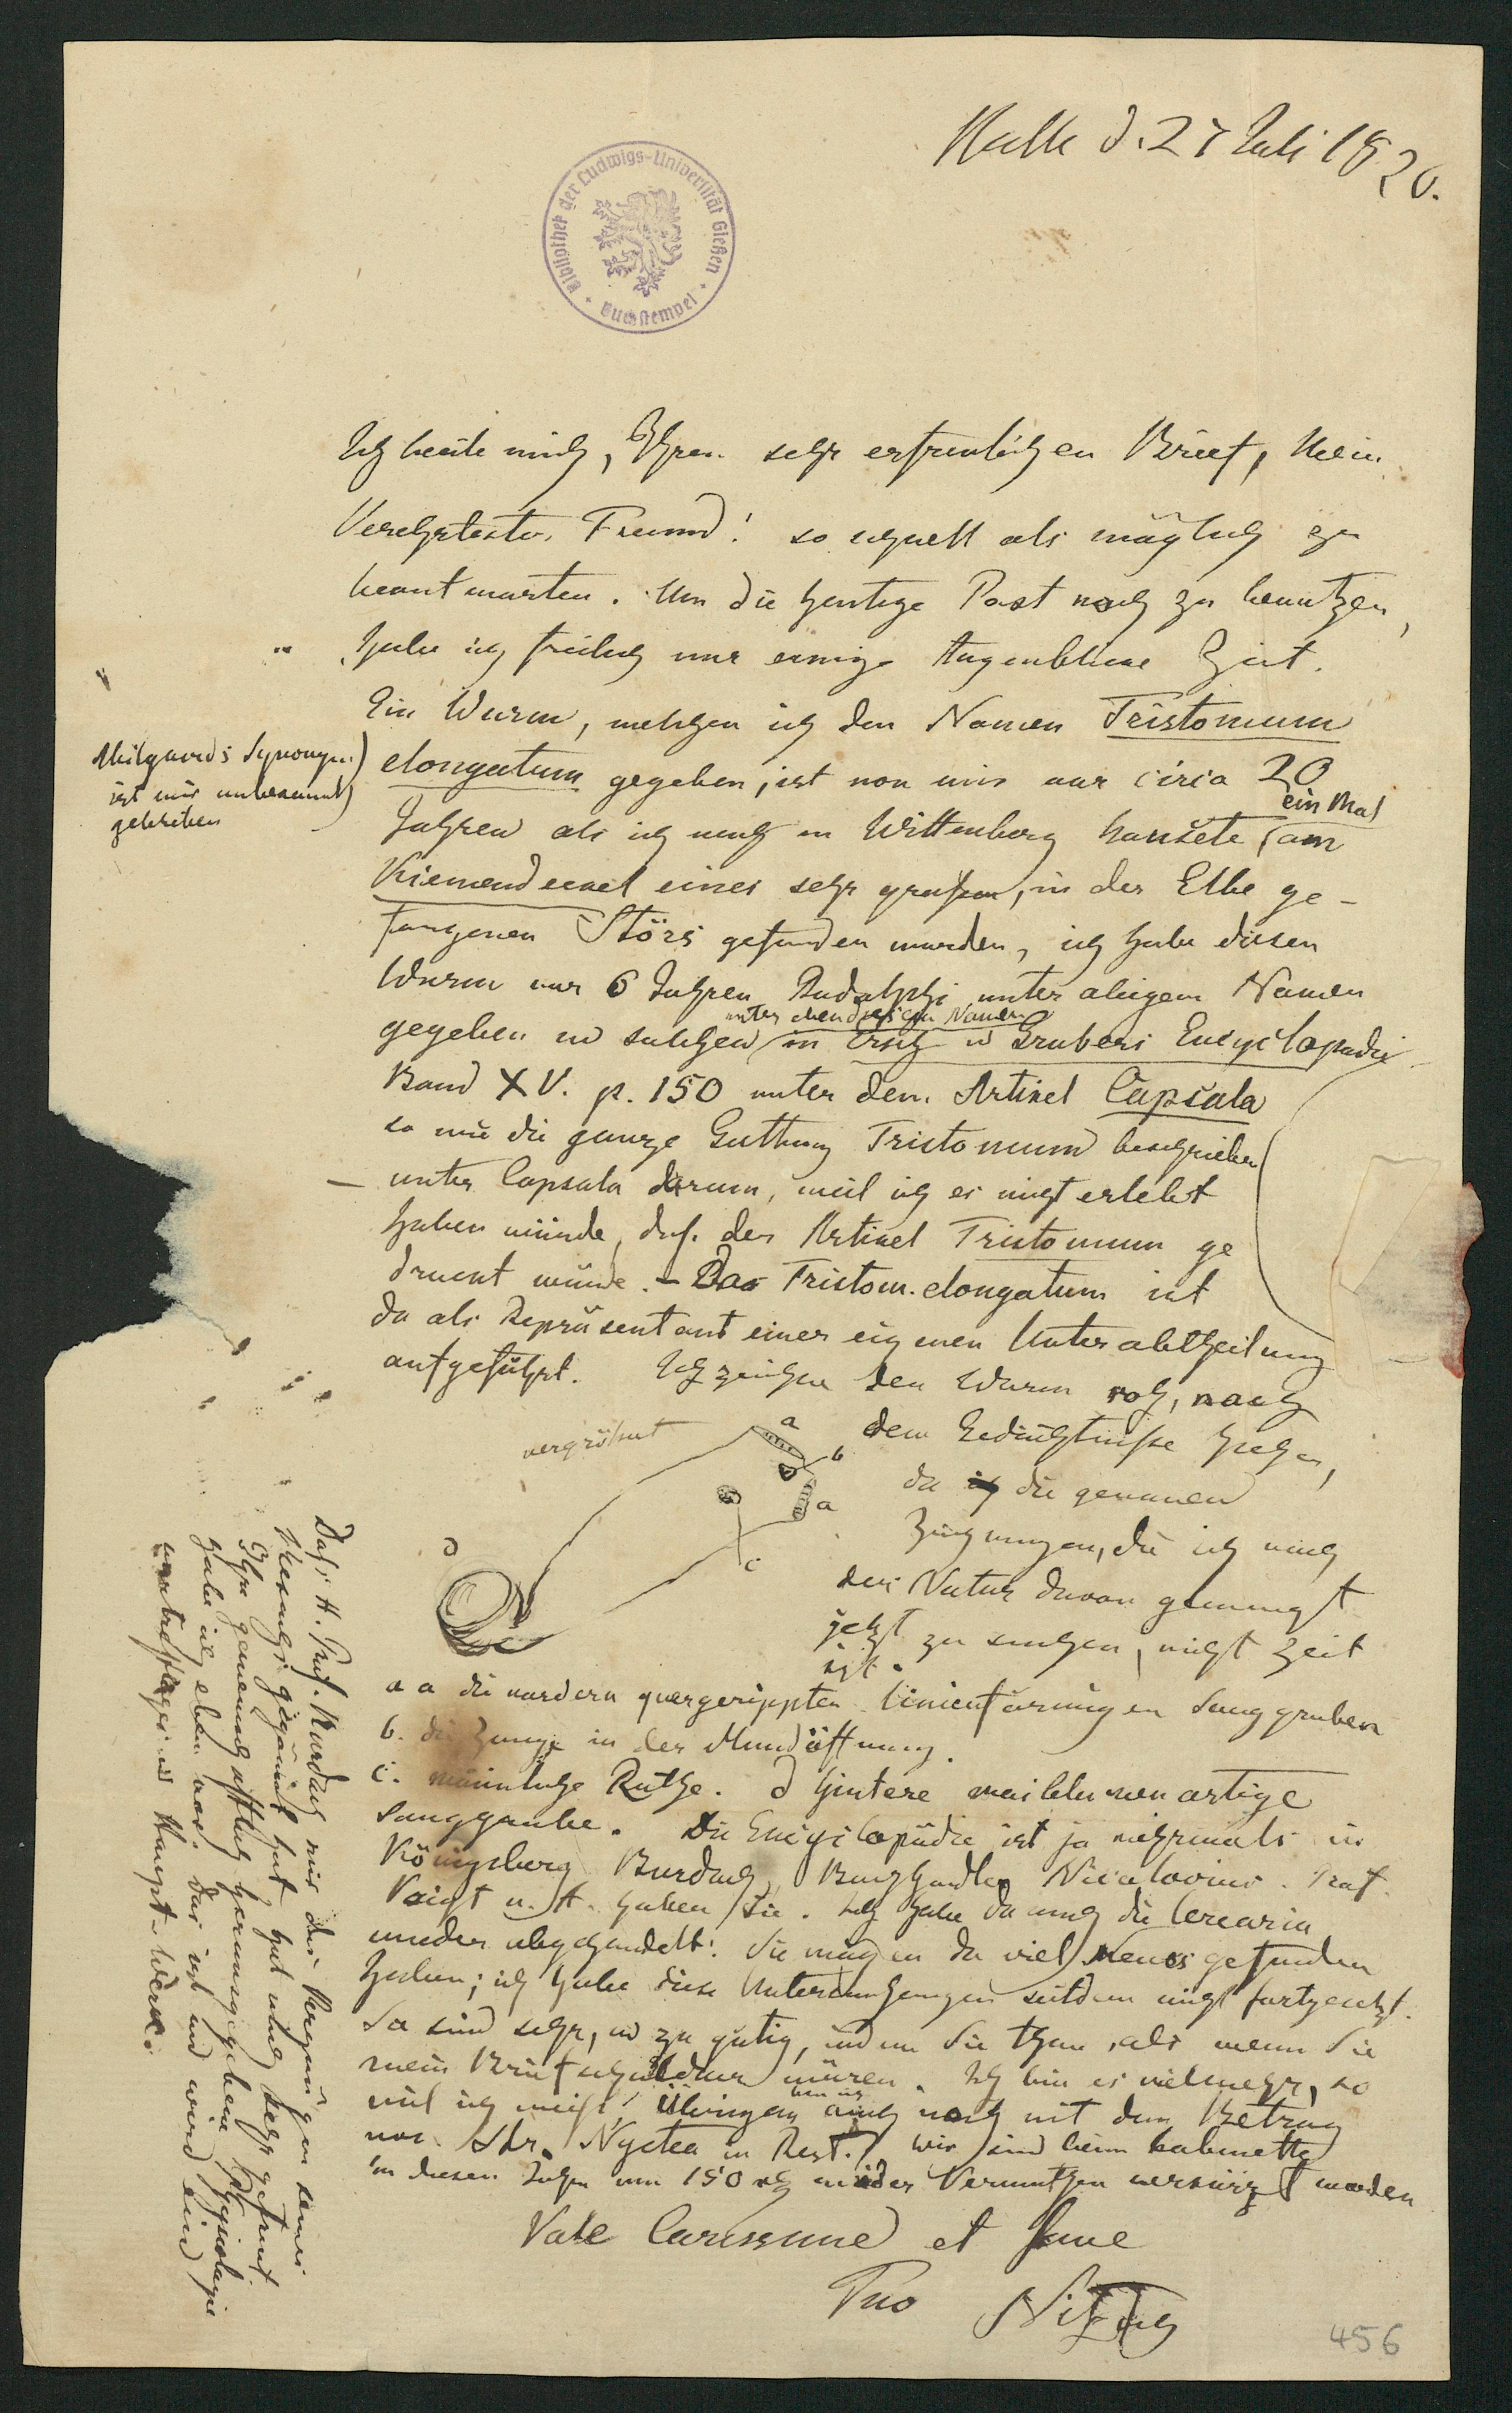 Halle d. 27 Juli 1826.
Bibliothek der Ludwigs-Universität Gießen
Buchstempel
Ich beeile mich, Ihren sehr erfreulichen Brief, Mein
Verehrtester Freund! so schnell als möglich zu
beantworten. Um die heutige Post noch zu benutzen,
habe ich freilich nur einige Augenblicke Zeit.
Ein Wurm, welchen ich den Namen Tristomum
elongatum gegeben, ist von mir vor circa 20
Jahren als ich noch in Wittenberg hausete ein Mal am
Kiemendeckel eines sehr großen, in der Elbe ge-
fangenen Störs gefunden worden, ich habe diesen
Wurm vor 6 Jahren Rudolphi unter obigem Namen
gegeben u solchen unter eben diesem Namen in Ersch u Grubers Encyclopädie
Band XV. p. 150 unter dem Artikel Capsala
so wie die ganze Gattung Tristomum beschrieben
– unter Capsala darum, weil ich es nicht erlebt
haben würde, daß der Artikel Tristomum ge
druckt würde. – Das Tristom. elongatum ist
da als Repräsentant einer eignen Unterabtheilung
aufgeführt. Ich zeichne den Wurm roh, nach
dem Gedächtnisse hieher,
da die genauen
Zeichnungen, die ich nach
der Natur davon gemacht
jetzt zu suchen, nicht Zeit
ist.
Abilgaards Synonym
ist mir unbekannt
geblieben
vergrößert
a
b
a
c
d
a a die vordern quergerippten linienförmigen Sauggruben
b. die Zunge in der Mundöffnung.
c. männliche Ruthe. d hintere
Sauggrube. Die Encyclopädie ist ja mehrmals in
Königsberg Burdach, Buchhändler Nicolovius. Prof.
Voigt u. A. haben sie. Ich habe da auch die Cercaria
wieder abgehandelt. Sie mögen da viel Neues gefunden
haben; ich habe diese Untersuchungen seitdem nicht fortgesetzt.
Sie sind sehr, u zu gütig, indem Sie thun, als wenn Sie
mein Briefschuldner wären. Ich bin es vielmehr, so
viel ich weiß! Übrigens bin ich auch noch mit dem Betrag
vor Str. Nyctea in Rest. Wir sind beim Kabinette
in diesen Jahren um 150 rth wider Vermuthen verkürzt worden
Vale Carissime et fave
Tuo Nitzsch
Daß H. Prof. Burdach mir das Vergnügen seines
Besuchs gegönnt hat hat mich sehr gefreut.
Ihre gemeinschaftlich herausgegebene Physiologie
habe ich eben vor. Das ist und wird ein
vortreffliches Haupt-Werk.
456